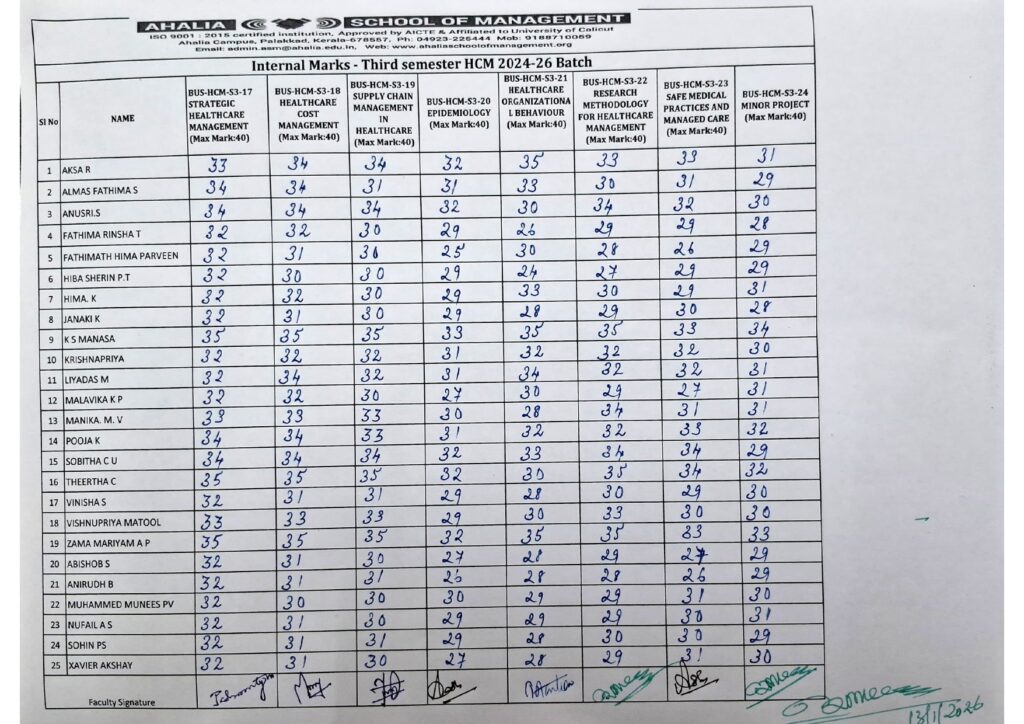 AHALIA SCHOOL OF MANAGEMENT
ISO 9001 : 2015 certified institution, Approved by AICTE & Affiliated to University of Calicut
Ahalia Campus, Palakkad, Kerala-678557, Ph: 04923-226444 Mob: 9188710059
Email: admin.asm@ahalia.edu.in, Web: www.ahaliaschoolofmanagement.org
Internal Marks - Third semester HCM 2024-26 Batch
Sl No NAME BUS-HCM-S3-17 STRATEGIC HEALTHCARE MANAGEMENT (Max Mark:40) BUS-HCM-S3-18 HEALTHCARE COST MANAGEMENT (Max Mark:40) BUS-HCM-S3-19 SUPPLY CHAIN MANAGEMENT IN HEALTHCARE (Max Mark:40) BUS-HCM-S3-20 EPIDEMIOLOGY (Max Mark:40) BUS-HCM-S3-21 HEALTHCARE ORGANIZATIONA L BEHAVIOUR (Max Mark:40) BUS-HCM-S3-22 RESEARCH METHODOLOGY FOR HEALTHCARE MANAGEMENT (Max Mark:40) BUS-HCM-S3-23 SAFE MEDICAL PRACTICES AND MANAGED CARE (Max Mark:40) BUS-HCM-S3-24 MINOR PROJECT (Max Mark:40)
1 AKSA R 33 34 34 32 35 33 33 31
2 ALMAS FATHIMA S 34 34 31 31 33 30 31 29
3 ANUSRI.S 34 34 34 32 30 34 32 30
4 FATHIMA RINSHA T 32 32 30 29 26 29 29 28
5 FATHIMATH HIMA PARVEEN 32 31 30 25 30 28 26 29
6 HIBA SHERIN P.T 32 30 30 29 24 27 29 29
7 HIMA. K 32 32 30 29 33 30 29 31
8 JANAKI K 32 31 30 29 28 29 30 28
9 K S MANASA 35 35 35 33 35 35 33 34
10 KRISHNAPRIYA 32 32 32 31 32 32 32 30
11 LIYADAS M 32 34 32 31 34 32 32 31
12 MALAVIKA K P 32 32 30 27 30 29 27 31
13 MANIKA. M. V 33 33 33 30 28 34 31 31
14 POOJA K 34 34 33 31 32 32 33 32
15 SOBITHA C U 34 34 34 32 33 34 34 29
16 THEERTHA C 35 35 35 32 30 35 34 32
17 VINISHA S 32 31 31 29 28 30 29 30
18 VISHNUPRIYA MATOOL 33 33 33 29 30 33 30 30
19 ZAMA MARIYAM A P 35 35 35 32 35 35 33 33
20 ABISHOB S 32 31 30 27 28 29 27 29
21 ANIRUDH B 32 31 31 26 28 28 26 29
22 MUHAMMED MUNEES PV 32 30 30 30 29 29 31 30
23 NUFAIL A S 32 31 30 29 29 29 30 31
24 SOHIN PS 32 31 31 29 28 30 30 29
25 XAVIER AKSHAY 32 31 30 27 28 29 31 30
Faculty Signature
13/1/2026